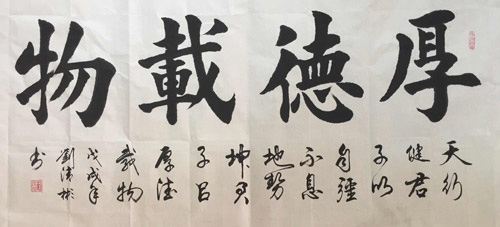 厚德載物
天行
健君
子以
自彊
不息
地勢
坤君
子㠯
厚德
載物
戊戌年
劉清彬
書